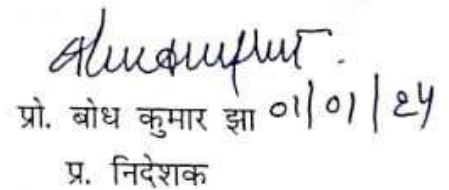 प्रो. बोध कुमार झा 01/01/24
प्र. निदेशक